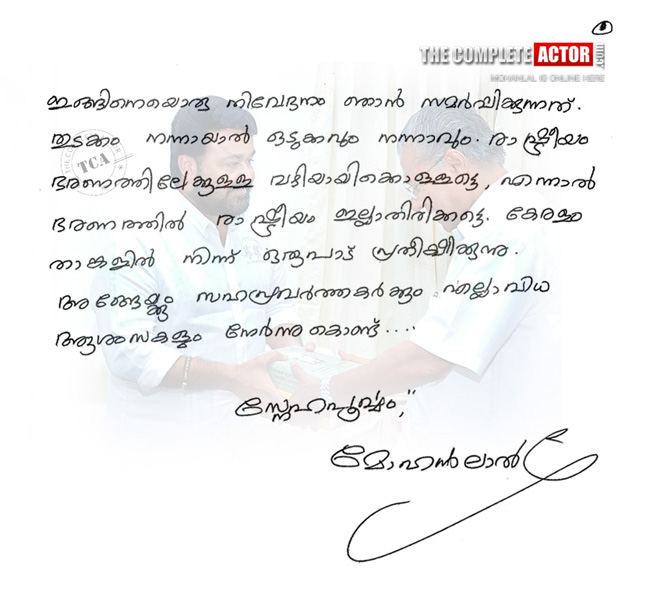 THE COMPLETE ACTOR
MOHANLAL IS ONLINE HERE
ഇങ്ങിനെയൊരു നിവേദനം ഞാൻ സമർപ്പിക്കുന്നത്.
തുടക്കം നന്നായാൽ ഒടുക്കവും നന്നാവും. രാഷ്ട്രീയം
ഭരണത്തിലേക്കുള്ള വഴിയായിക്കൊള്ളട്ടെ, എന്നാൽ
ഭരണത്തിൽ രാഷ്ട്രീയം ഇല്ലാതിരിക്കട്ടെ. കേരളം
താങ്കളിൽ നിന്ന് ഒരുപാട് പ്രതീക്ഷിക്കുന്നു.
അങ്ങേയ്ക്കും സഹപ്രവർത്തകർക്കും എല്ലാവിധ
ആശംസകളും നേർന്നു കൊണ്ട്....
TCA
സ്നേഹപൂർവ്വം,
മോഹൻലാൽ